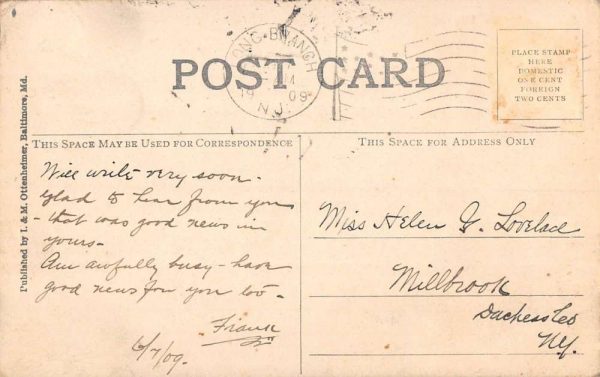 LONG BRANCH
14
1909
N.J.
POST CARD
PLACE STAMP
HERE
DOMESTIC
ONE CENT
FOREIGN
TWO CENTS
THIS SPACE MAY BE USED FOR CORRESPONDENCE
THIS SPACE FOR ADDRESS ONLY
Published by I. & M. Ottenheimer, Baltimore, Md.
Will write very soon-
Glad to hear from you
- that was good news in
yours-
Am awfully busy - have
good news for you too -
Frank
6/7/09.
Miss Helen G. Lovelad
Millbrook
Duchess Co
N.Y.